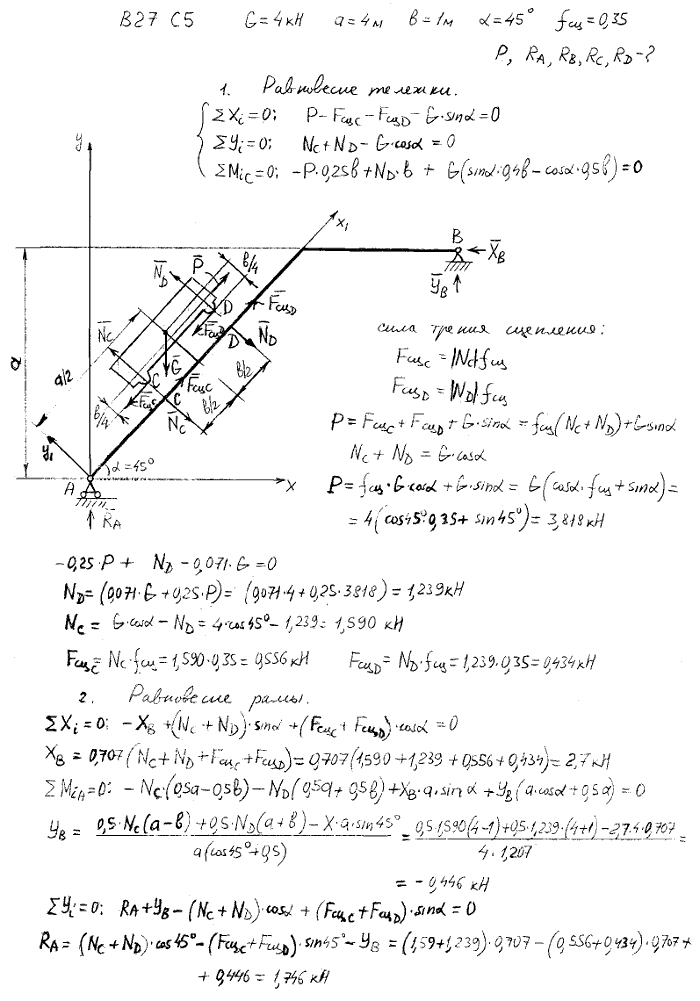 B27 C5 G=4кН a=4м в=1м α=45° fсц=0,35
P, RA, RB, RC, RD-?
1. Равновесие тележки.
ΣXi=0; P-FсцC-FсцD-G·sinα=0
ΣYi=0; NC+ND-G·cosα=0
ΣMiC=0; -P·0,25в+ND·в + G(sinα·0,4в-cosα·0,5в)=0
y
x1
B
X̄B
ȲB
P̄
в/4
N̄D
D
F̄сцD
F̄сцD
D
N̄D
N̄C
a
a/2
Ḡ
C
F̄сцC
F̄сцC
C
в/2
в/2
N̄C
в/4
y1
α=45°
A
x
R̄A
сила трения сцепления:
FсцC=|NC|fсц
FсцD=|ND|fсц
P=FсцC+FсцD+G·sinα=fсц(NC+ND)+Gsinα
NC+ND=G·cosα
P=fсц·G·cosα+G·sinα=G(cosα·fсц+sinα)=
=4(cos45°0,35+sin45°)=3,818кН
-0,25·P+ ND-0,071·G=0
ND=(0,071·G+0,25·P)=(0,071·4+0,25·3818)=1,239кН
NC=G·cosα-ND=4·cos45°-1,239=1,590кН
FсцC=NC·fсц=1,590·0,35=0,556кН FсцD=ND·fсц=1,239·0,35=0,434кН
2. Равновесие рамы.
ΣXi=0; -XB+(NC+ND)·sinα+(FсцC+FсцD)·cosα=0
XB=0,707(NC+ND+FсцC+FсцD)=0,707(1,590+1,239+0,556+0,434)=2,7кН
ΣMiA=0; -NC·(0,5a-0,5в)-ND(0,5a+0,5в)+XB·a·sinα+YB(a·cosα+0,5a)=0
YB=0,5·NC(a-в)+0,5·ND(a+в)-X·a·sin45°/a(cos45°+0,5)=0,5·1,590(4-1)+0,5·1,239·(4+1)-2,7·4·0,707/4·1,207=
=-0,446кН
ΣYi=0; RA+YB-(NC+ND)·cosα+(FсцC+FсцD)·sinα=0
RA=(NC+ND)·cos45°-(FсцC+FсцD)·sin45°-YB=(1,59+1,239)·0,707-(0,556+0,434)·0,707+
+0,446=1,746кН